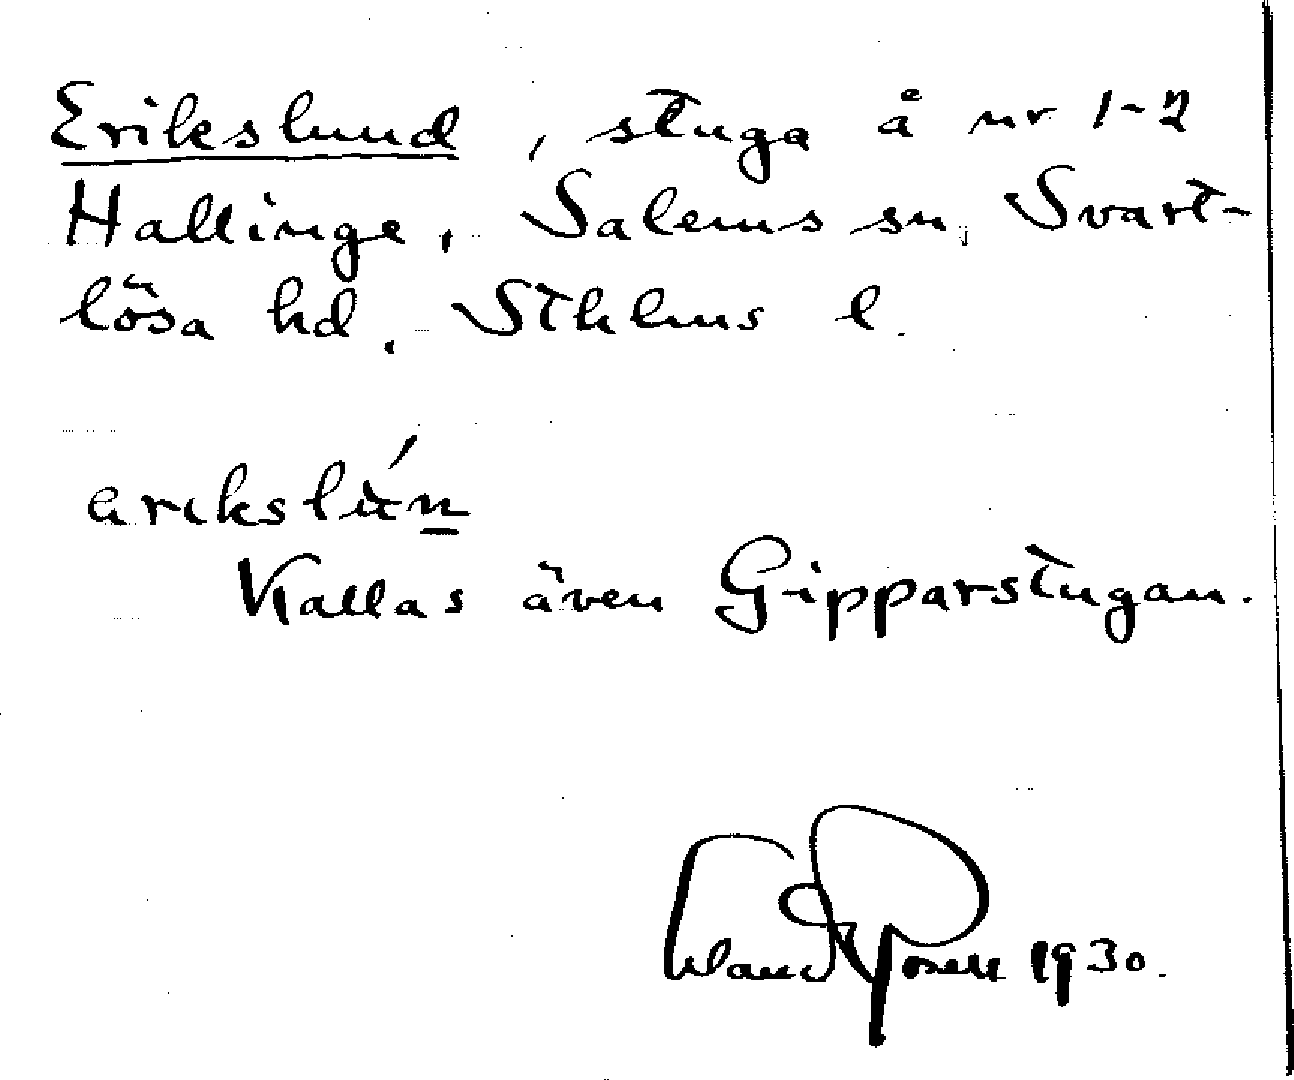 Erikslund, stuga å nr 1-2
Hallinge, Salems sn, Svart-
lösa hd, Sthlms l.
erikslún
Kallas även Gipparstugan.
Erland Rosell 1930.